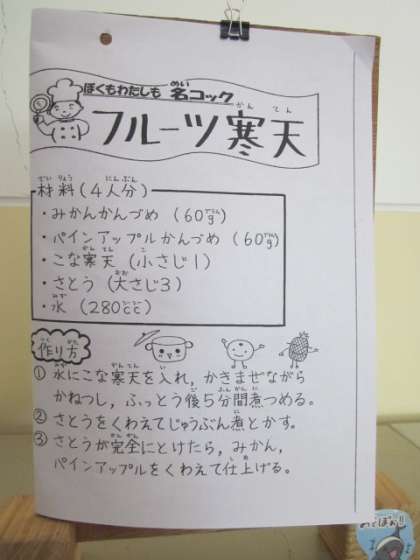 ぼくもわたしも 名コック
フルーツ寒天
材料(4人分)
・みかんかんづめ (60g)
・パインアップルかんづめ (60g)
・こな寒天 (小さじ1)
・さとう (大さじ3)
・水 (280cc)
作り方
① 水にこな寒天を入れ, かきまぜながら
かねつし, ふっとう後5分間煮つめる。
② さとうをくわえてじゅうぶん煮とかす。
③ さとうが完全にとけたら, みかん,
パインアップルをくわえて仕上げる。